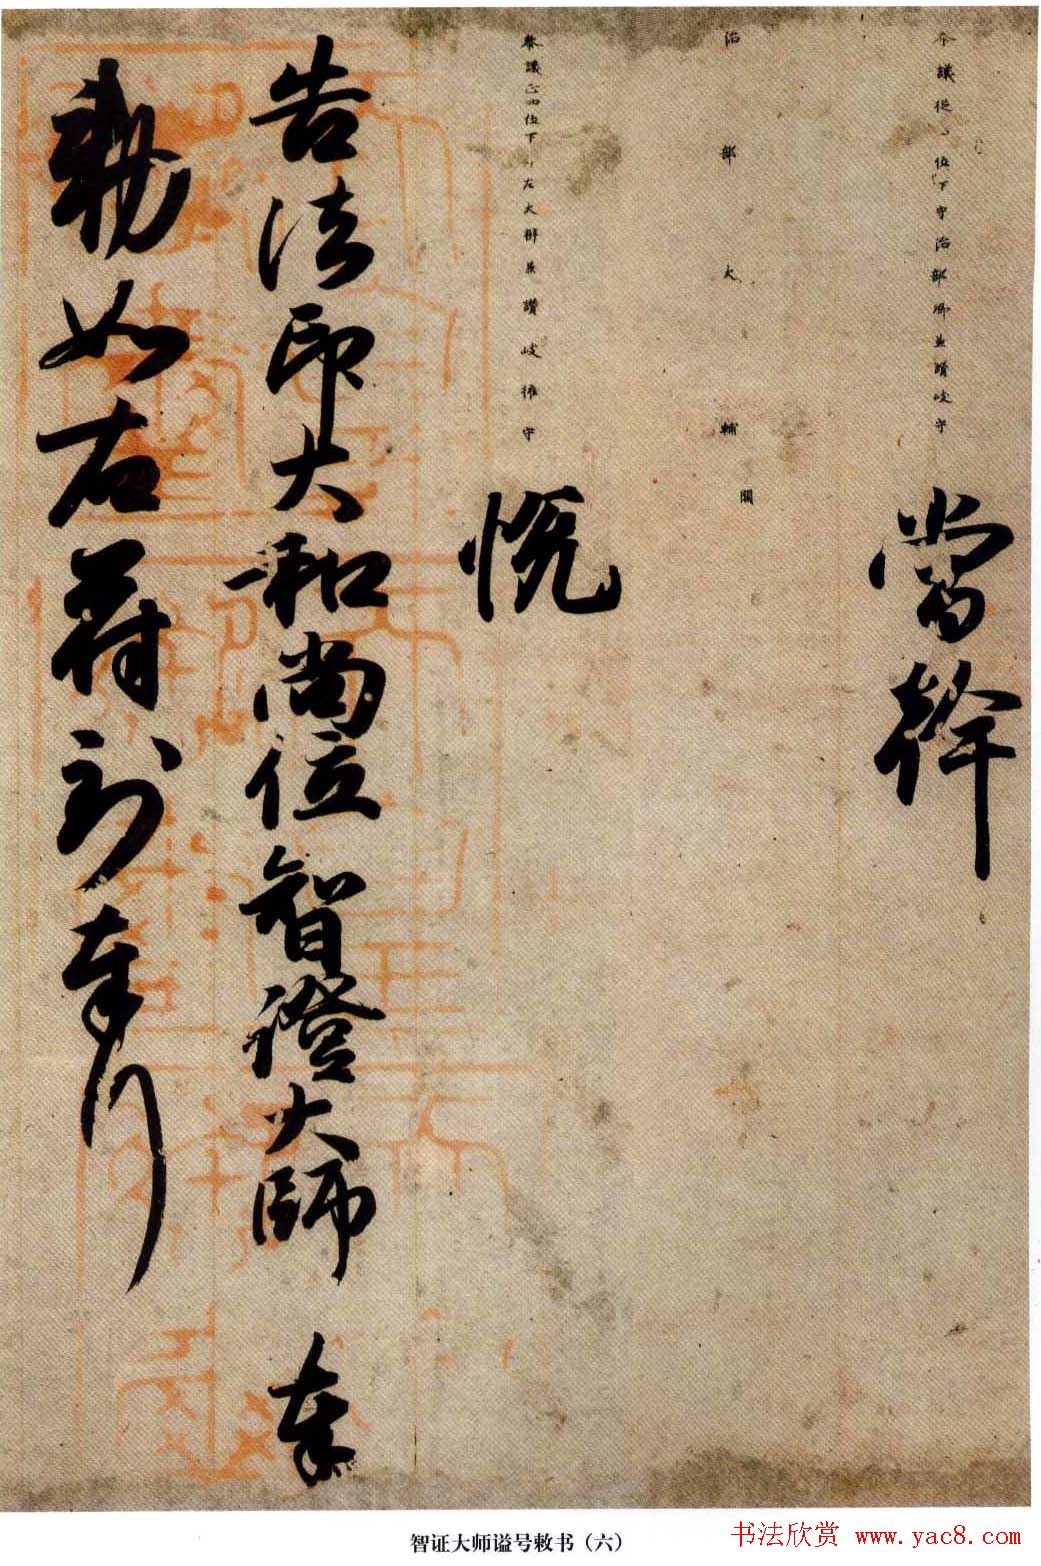 參議從位下守治部卿兼讚岐守 當幹
治部大輔闕
參議正四位下行左大辨兼讚岐權守 悅
告法印大和尚位智證大師 奉
勅如右符到奉行
智证大师谥号敕书（六）
书法欣赏 www.yac8.com